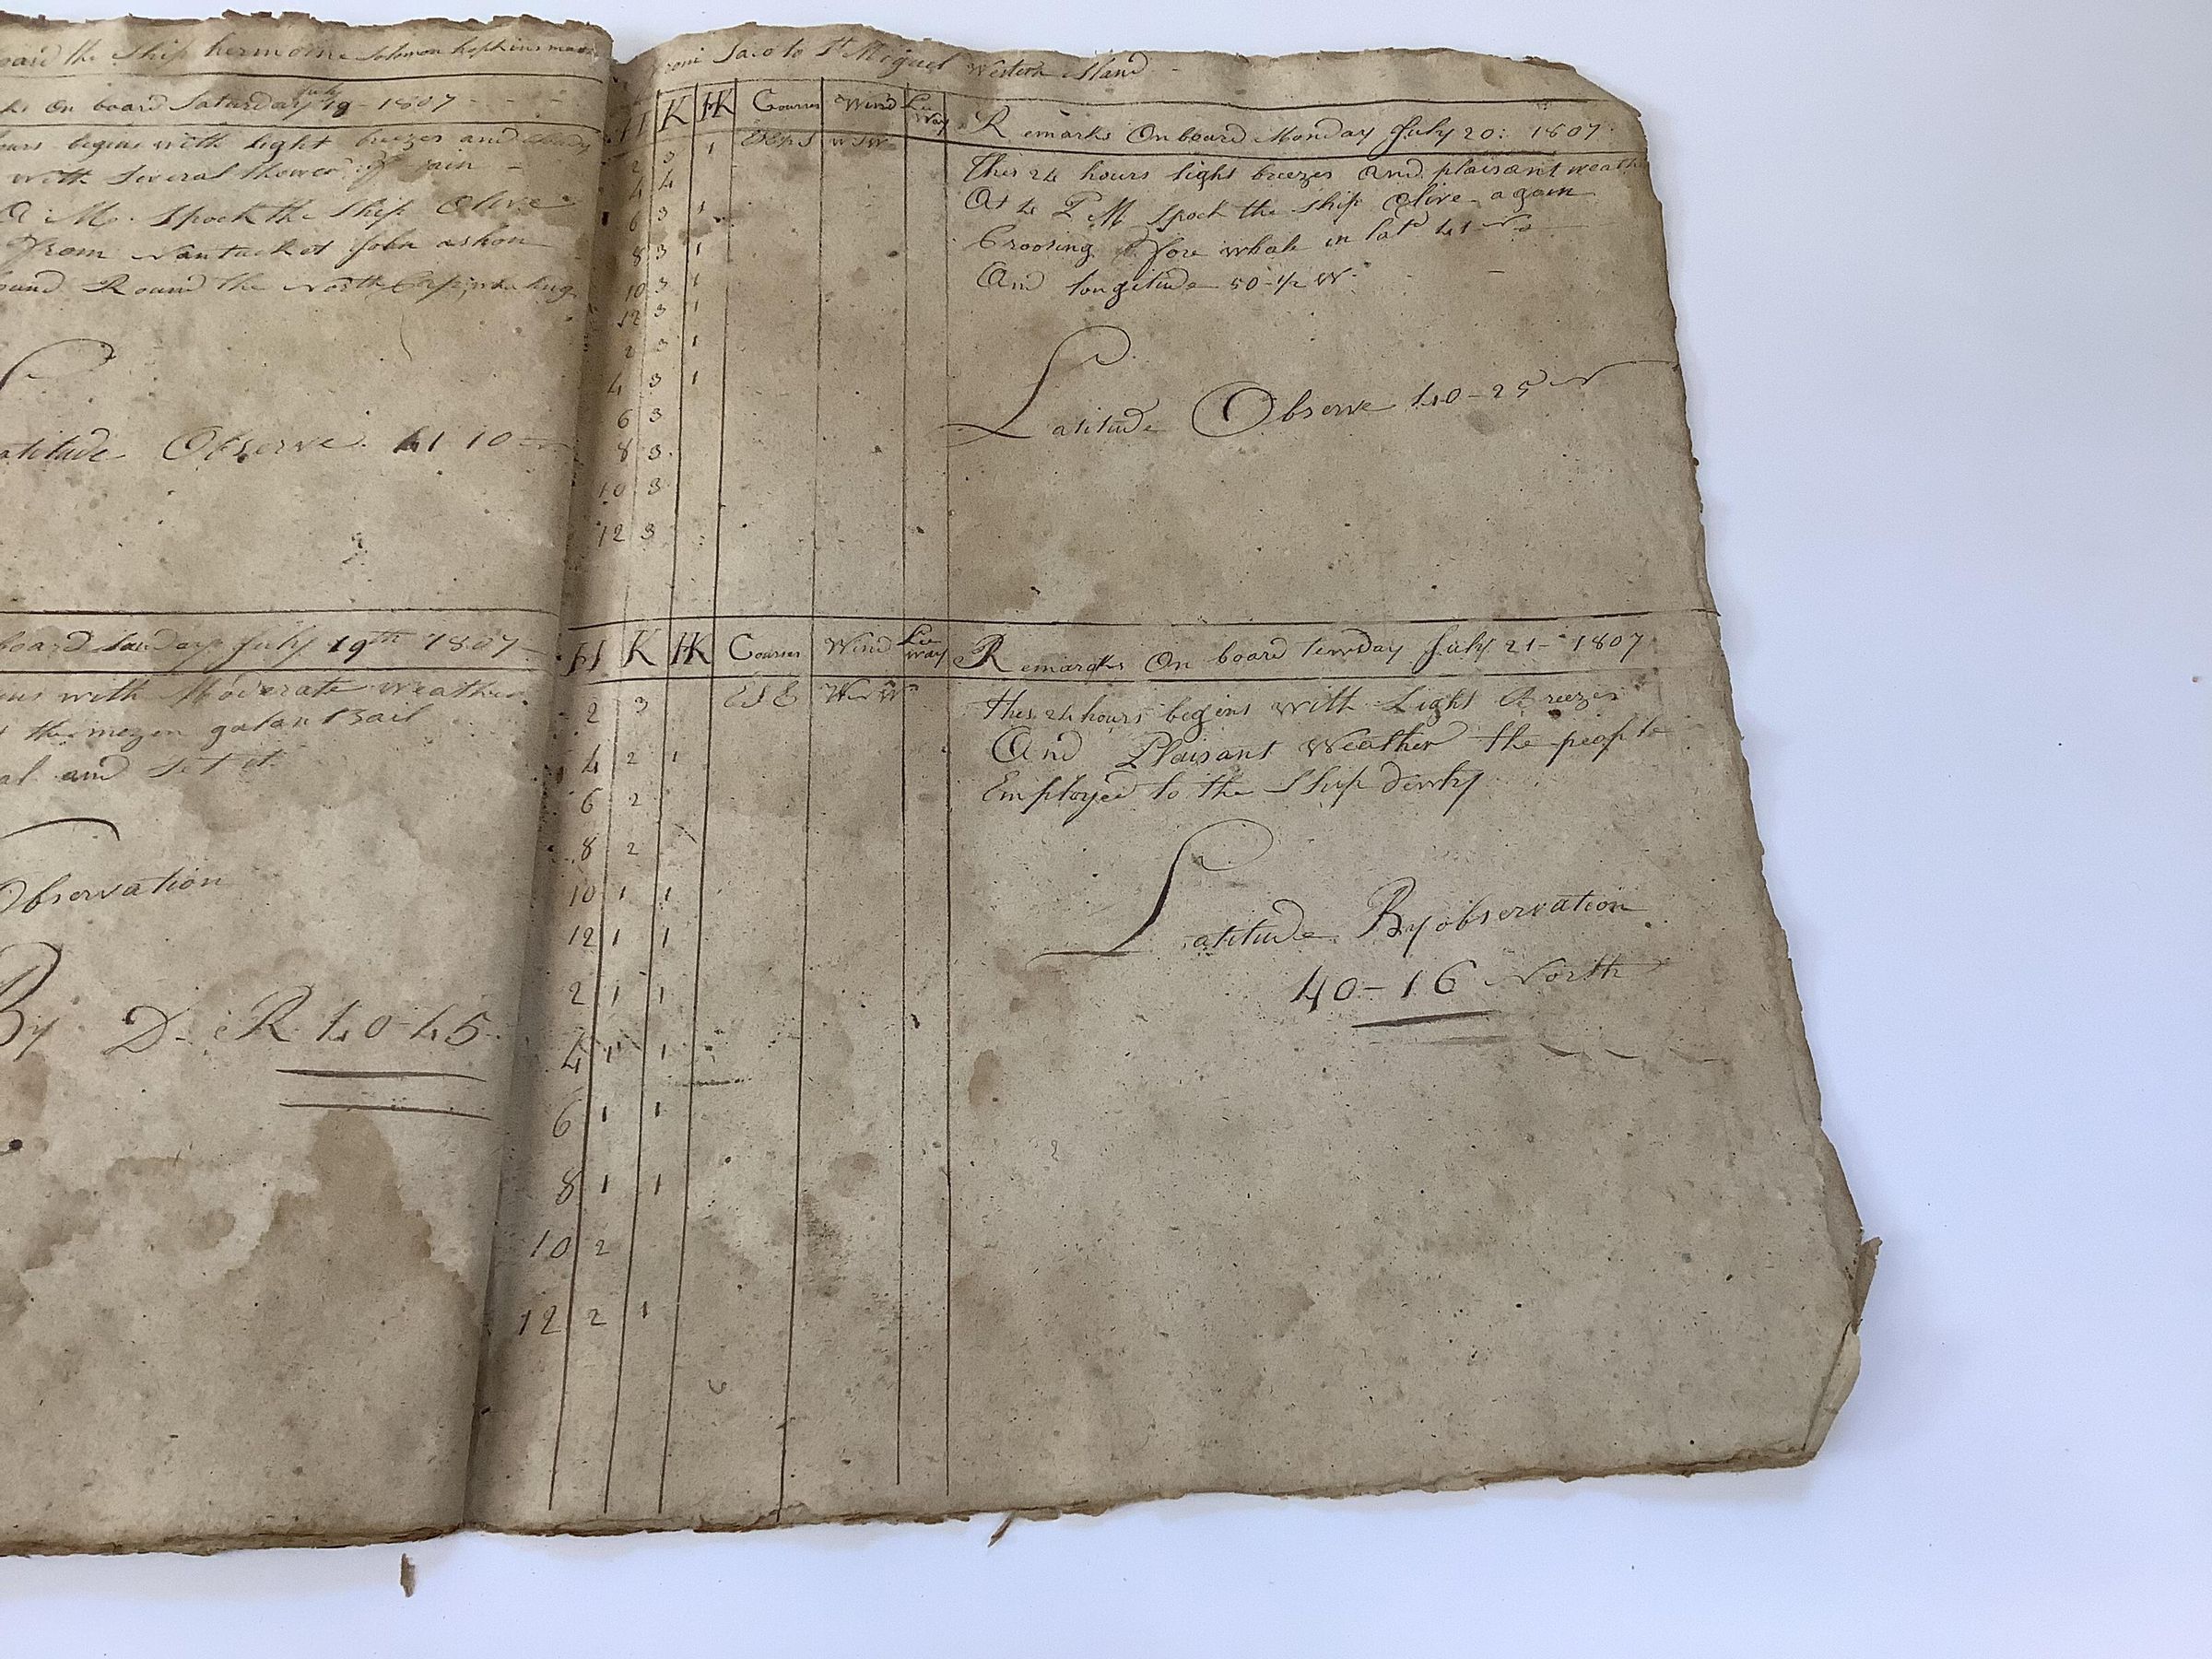 board the Ship hermione Solomon hopkins
On board Saturday July 19 - 1807
hours begins with light breezes and Cloudy
with Several Shower of rain -
A M. Spock the Ship Olive
From Nantucket John
Round the North Cape
atitude Observe 41 10
board Sunday July 19th 1807
with Moderate weather
the mezen galant Sail
and Set it
Observation
By D. R 40-45
Saco to St Miguel Western Island
H K HK Courses Wind Lee Way Remarks On board Monday July 20: 1807
2 3 1 ESE W S W
4 4
6 3 1
8 3 1
10 3 1
12 3 1
2 3 1
4 3 1
6 3
8 3
10 3
12 3
This 24 hours light breezes And plaisant weath
At 4 P M Spock the Ship Olive again
Croosing fore whale in latd 41 No
And longitude 50-1/2 W
Latitude Observe 40-25 N
H K HK Courses Wind Lee way Remarks On board tewsday July 21 - 1807
2 3 ESE W N W
4 2 1
6 2
8 2
10 1 1
12 1 1
2 1 1
4 1 1
6 1 1
8 1 1
10 2
12 2 1
This 24 hours begins with Light Breezes
And Plaisant Weather the people
Employed to the Ship dewty
Latitude By observation
40-16 North